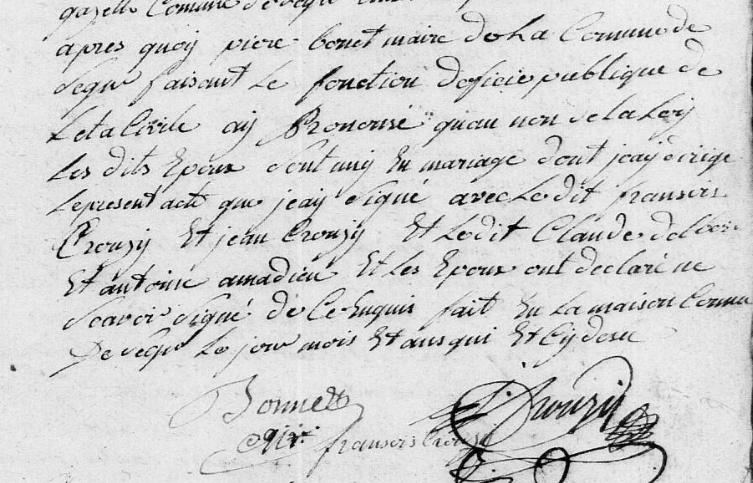 gazelle Comune de
apres quoy piere bonet maire de La Comune de
Segur faisant Le fonction doficié publique de
Leta Civile aÿ Prononsé quau non de la Loy
Les dits Epoux sont uny En mariage dont jeay dérigé
Lepresent acte que jeay Signé avec Ledit fransois
Crouzy Et jean Crouzy Et Ledit Claude delbos
Et antoine amadieu Et Les Epoux ont declaré ne
Scavoir Signé de Ce Enquis fait En La maison Comu
De Segur Le jour mois Et ans qui Et Cy desu
Bonnet
fransois Crouzy
Crouzy